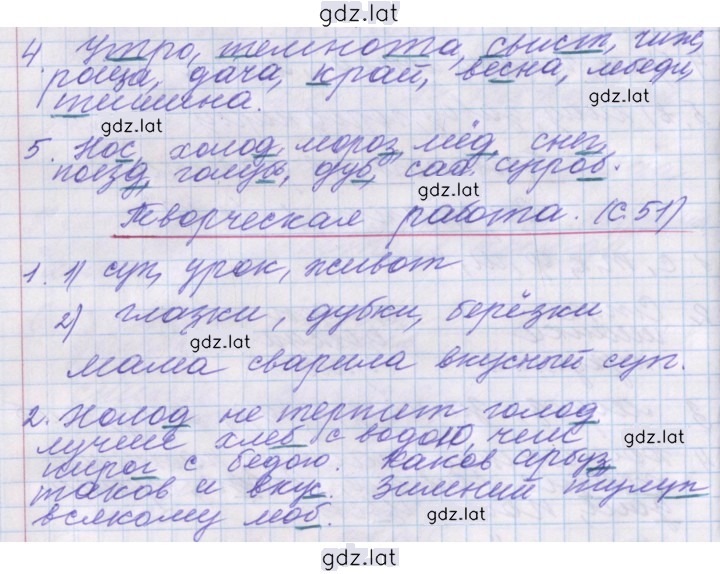 gdz.lat
4. Утро, темнота, свист, чиж,
роща, дача, край, весна, лебеди,
тишина.
gdz.lat
gdz.lat
5. Нос, холод, мороз, мёд, снег,
поезд, голубь, дуб, сад. сугроб.
gdz.lat
Творческая работа. (с. 51)
1. 1) суп, урок, живот
2) глазки, дубки, берёзки
gdz.lat
мама сварила вкусный суп.
2. Холод не терпит голод
лучше хлеб с водою, чем
gdz.lat
пирог с бедою. Каков арбуз,
таков и вкус. Зимний тулуп
всякому люб.
gdz.lat
gdz.lat